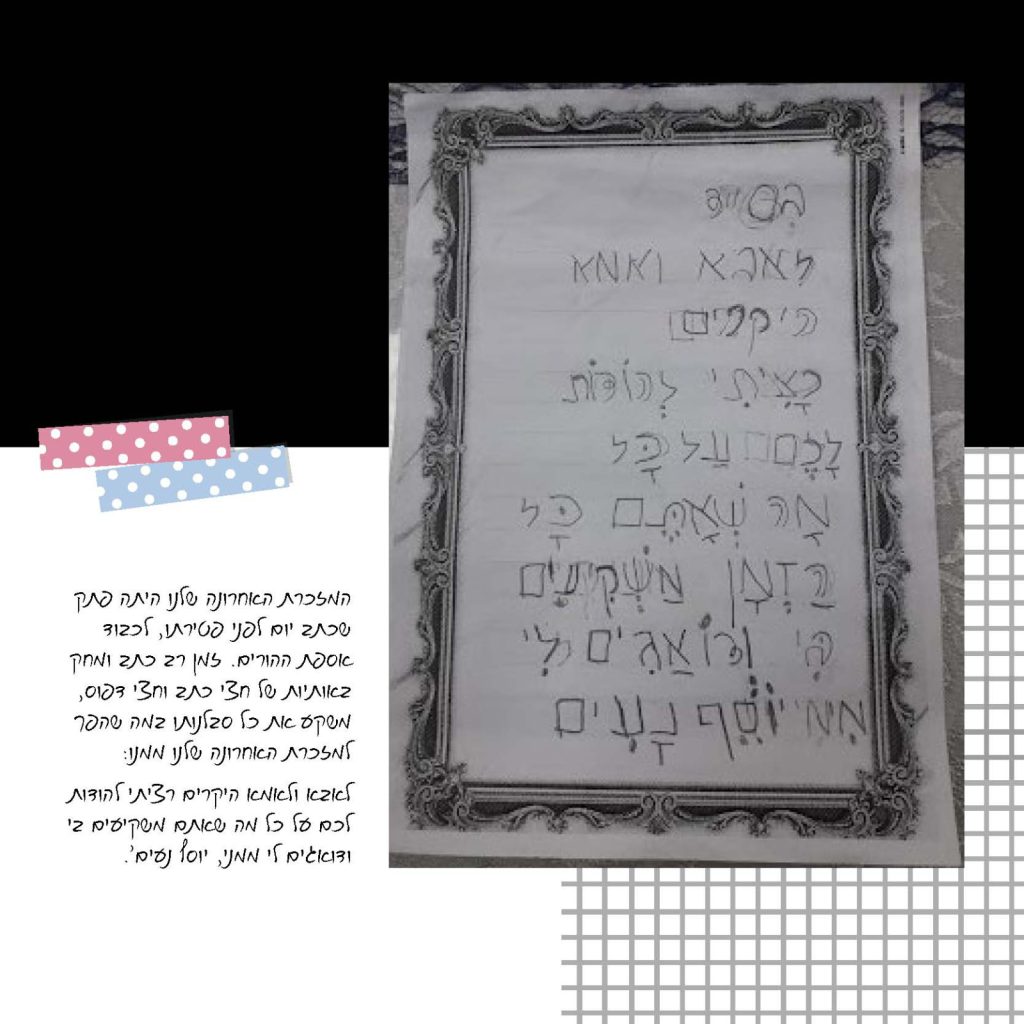 בס"ד
לאבא ואמא
היקרים
רָצִיתִי לְהוֹדוֹת
לָכֶם עַל כָּל
מָה שְׁאָתֶּם כָּל
הַזְמָן מַשְׁקִיעִים
בִּי וְדוֹאַגִים לִי
מִמֶנִי יוֹסֵף נָעִים
המזכרת האחרונה שלנו היתה פתק
שכתב יום לפני פטירתו, לכבוד
אספת ההורים. זמן רב כתב ומחק
באותיות של חצי כתב וחצי דפוס,
משקע את כל סבלנותו במה שהפך
למזכרת האחרונה שלנו ממנו:
לאבא ולאמא היקרים רציתי להודות
לכם על כל מה שאתם משקיעים בי
ודואגים לי ממני, יוסף נעים'.